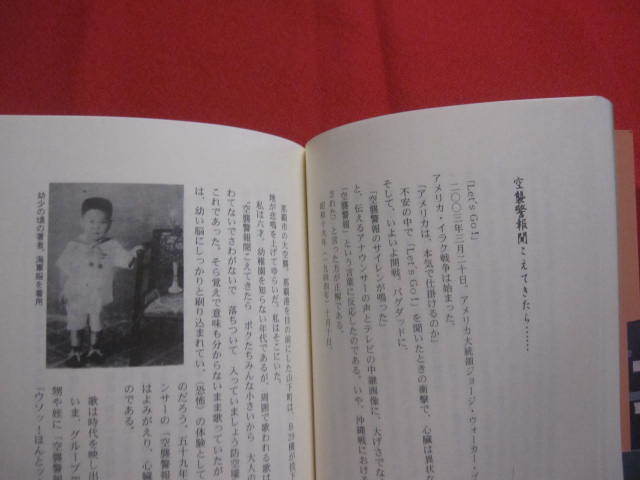 空襲警報聞こえてきたら……
「Let's Go!」
二〇〇三年三月二十日、アメリカ大統領ジョージ・ウォーカー・ブ
アメリカ・イラク戦争は始まった。
「アメリカは、本気で仕掛けるのか」
不安の中で「Let's Go!」を聞いたときの衝撃で、心臓は異状な
そして、いよいよ開戦。バグダッドに、
「空襲警報のサイレンが鳴った」
と、伝えるアナウンサーの声とテレビの中継画像に、大げさでなく
「空襲警報」という言葉に反応したのである。いや、沖縄戦における
された」と言った方が正解である。
昭和十九年（一九四四年）十月十日。
那覇市の大空襲。那覇港を目の前にした山下町は、B29機が投下
地が悲鳴を上げてゆらいだ。私はそこにいた。
私は六才。幼稚園を知らない年代であるが、周囲で歌われる歌は
「空襲警報聞こえてきたら ボクたちみんな小さいから 大人の
わてないでさわがないで 落ちついて 入っていましょう防空壕
これであった。そら覚えで意味も分からないまま歌っていたが
は、幼い脳にしっかりと刷り込まれてい、〈恐怖〉の体験として
のだろう。五十九年
ンサーの「空襲警報
はよみがえり、心臓
のである。
歌は時代を映し出
いま、グループ
甥や姪に「空襲警報
「ウソッ！ほんとッ
幼少の頃の著者。海軍服を着用